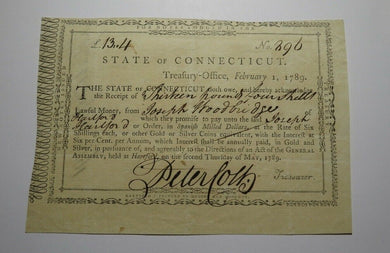 £ 13.4 No. 296
STATE OF CONNECTICUT.
Treasury-Office, February 1, 1789.
THE STATE OF CONNECTICUT doth owe, and hereby acknowledges
the Receipt of Thirteen Pounds four Shills
Lawful Money, from Joseph Woodbridge
Hartford which they promise to pay unto the said Joseph
Hartford or Order, in Spanish Milled Dollars, at the Rate of Six
Shillings each, or other Gold or Silver Coins equivalent, with Interest at
Six per Cent. per Annum, which Interest shall be annually paid, in Gold and
Silver, in pursuance of, and agreeably to the Directions of an Act of the GENERAL
ASSEMBLY, held at Hartford, on the second Thursday of MAY, 1789.
Peter Colt Treasurer.